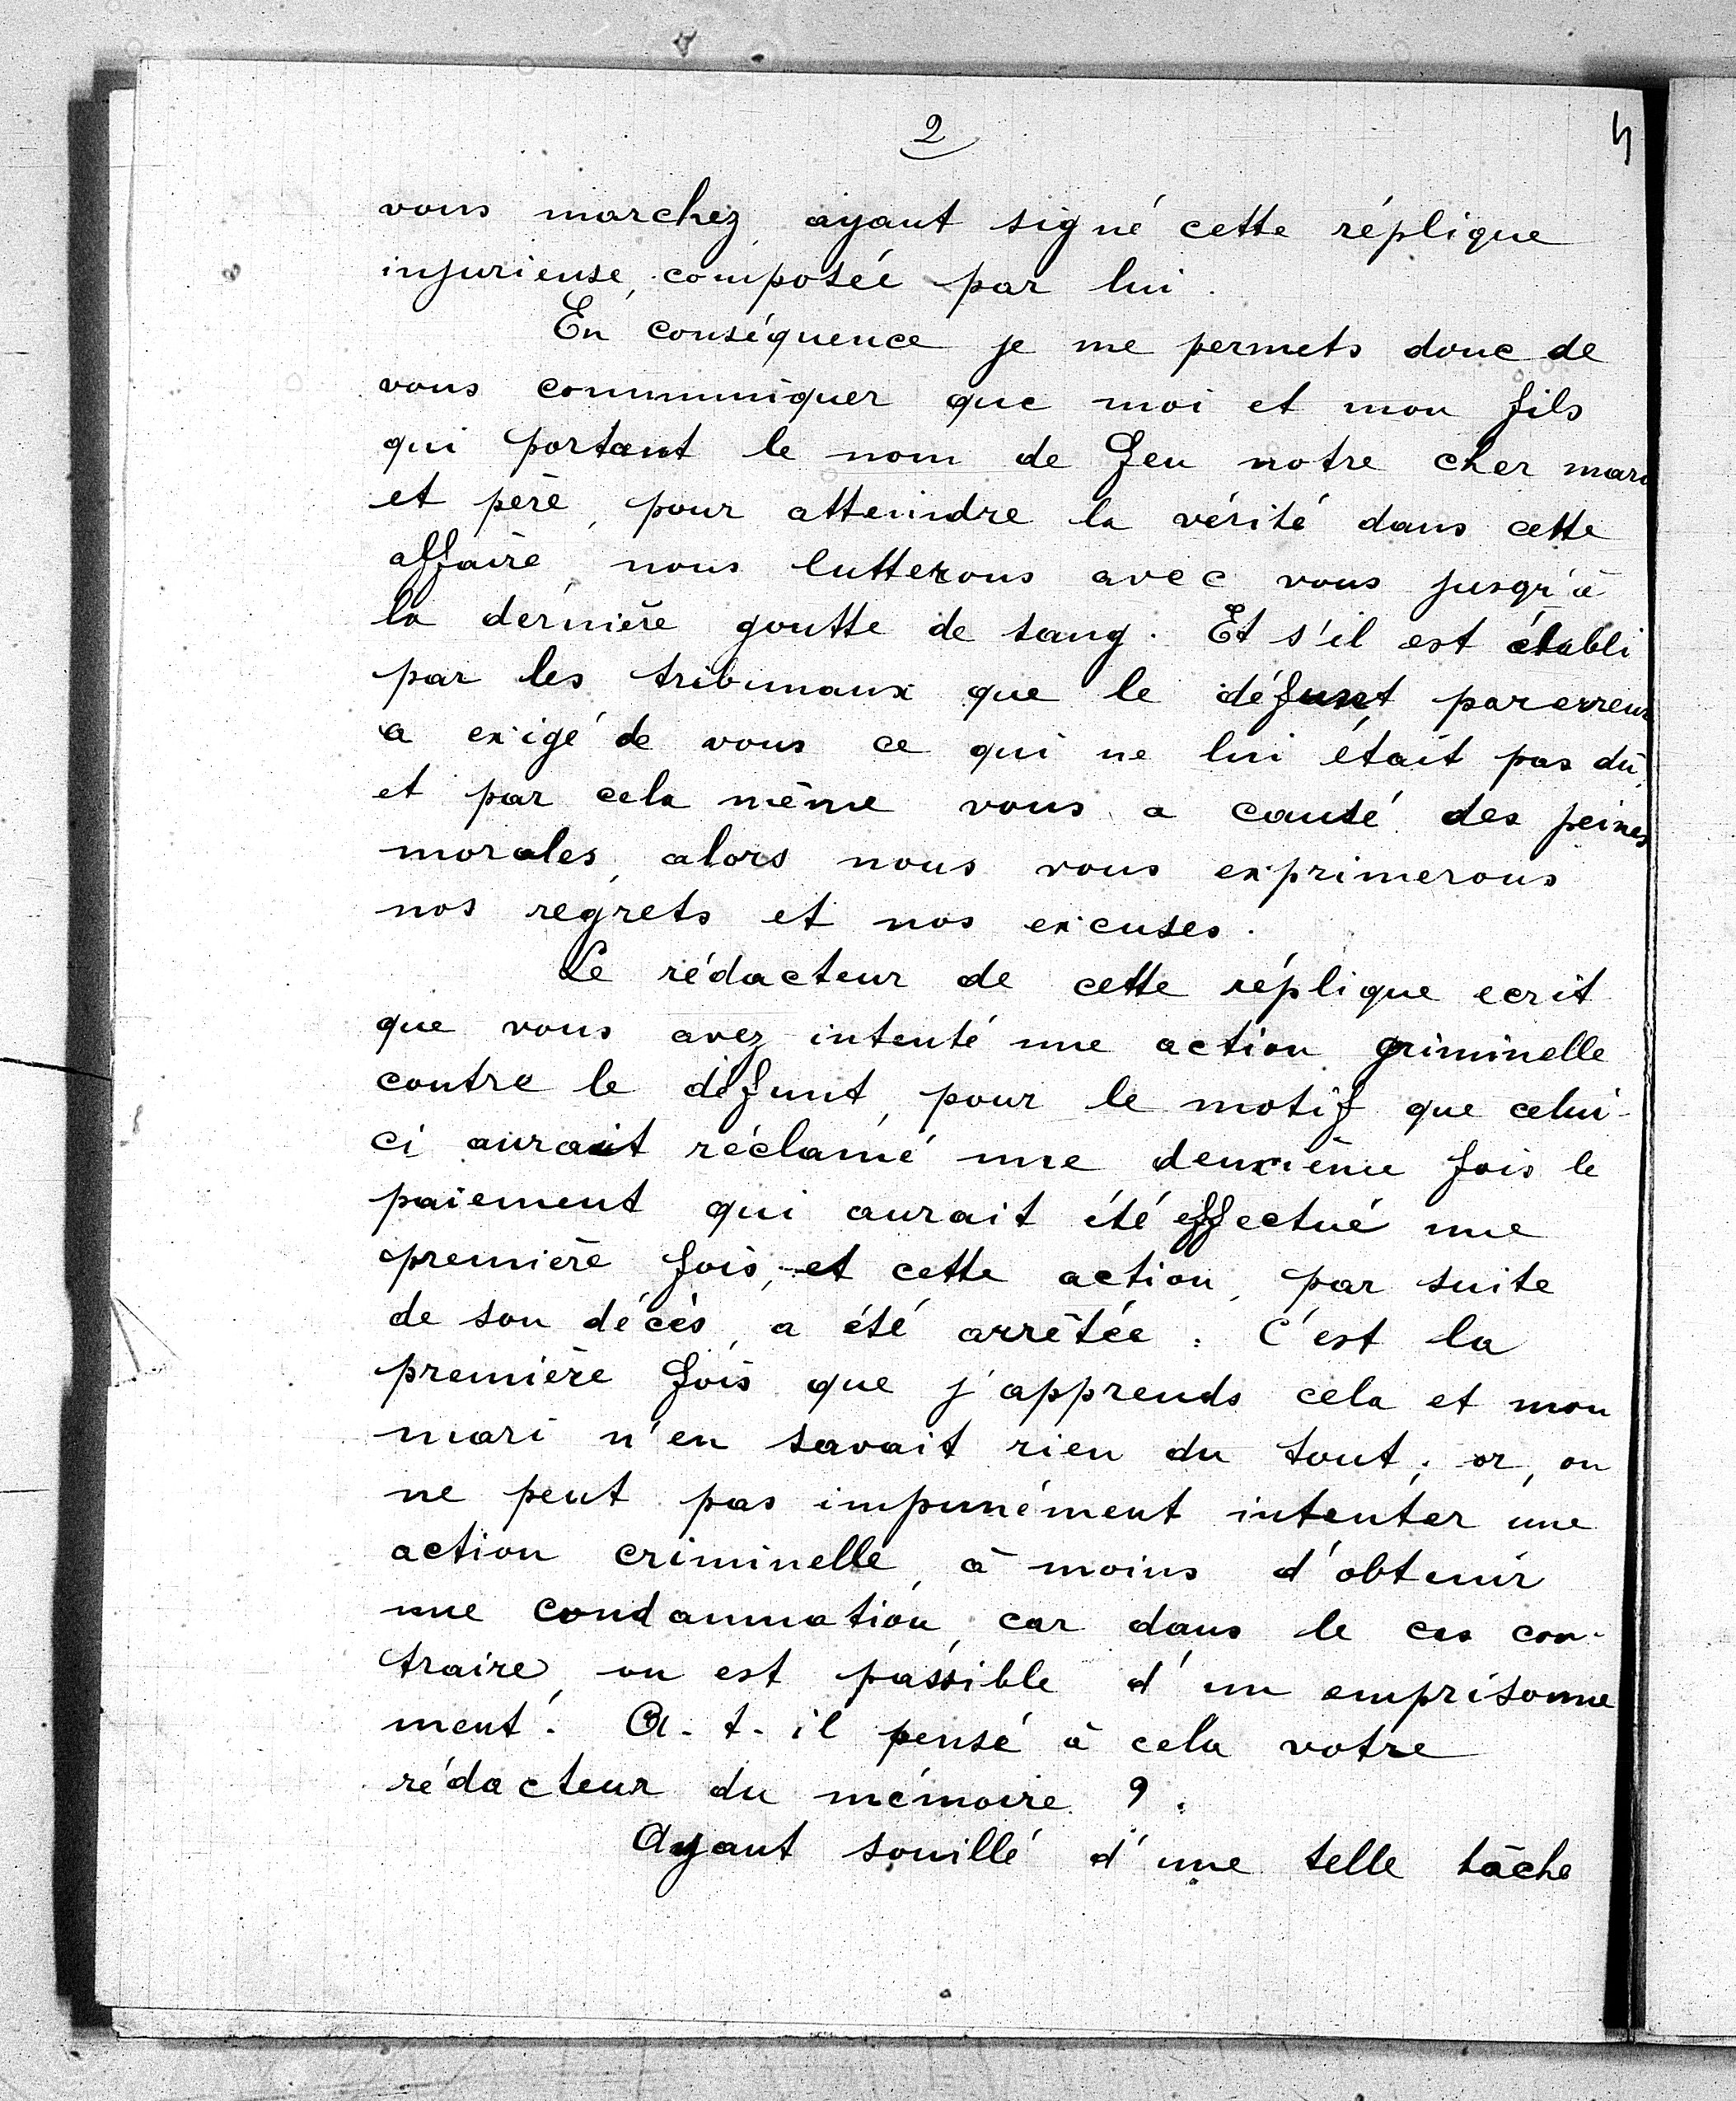 2
vous marchez, ayant signé cette réplique
injurieuse, composée par lui.
En conséquence je me permets donc de
vous communiquer que moi et mon fils
qui portant le nom de feu notre cher mari
et père, pour atteindre la vérité dans cette
affaire, nous lutterons avec vous jusqu'à
la dernière goutte de sang. Et s'il est établi
par les tribunaux que le défunt par erreur
a exigé de vous ce qui ne lui était pas dû,
et par cela même vous a causé des peines
morales, alors nous vous exprimerons
nos regrets et nos excuses.
Le rédacteur de cette réplique ecrit
que vous avez intenté une action criminelle
contre le défunt, pour le motif que celui-
ci aurait réclamé une deuxième fois le
paiement qui aurait été effectué une
première fois, et cette action, par suite
de son décès, a été arrêtée : C'est la
première fois que j'apprends cela et mon
mari n'en savait rien du tout; or, on
ne peut pas impunément intenter une
action criminelle, à moins d'obtenir
une condamnation, car dans le cas con-
traire, on est passible d'un emprisonne
ment. A-t-il pensé à cela votre
rédacteur du mémoire ?.
Ayant souillé d'une telle tâche